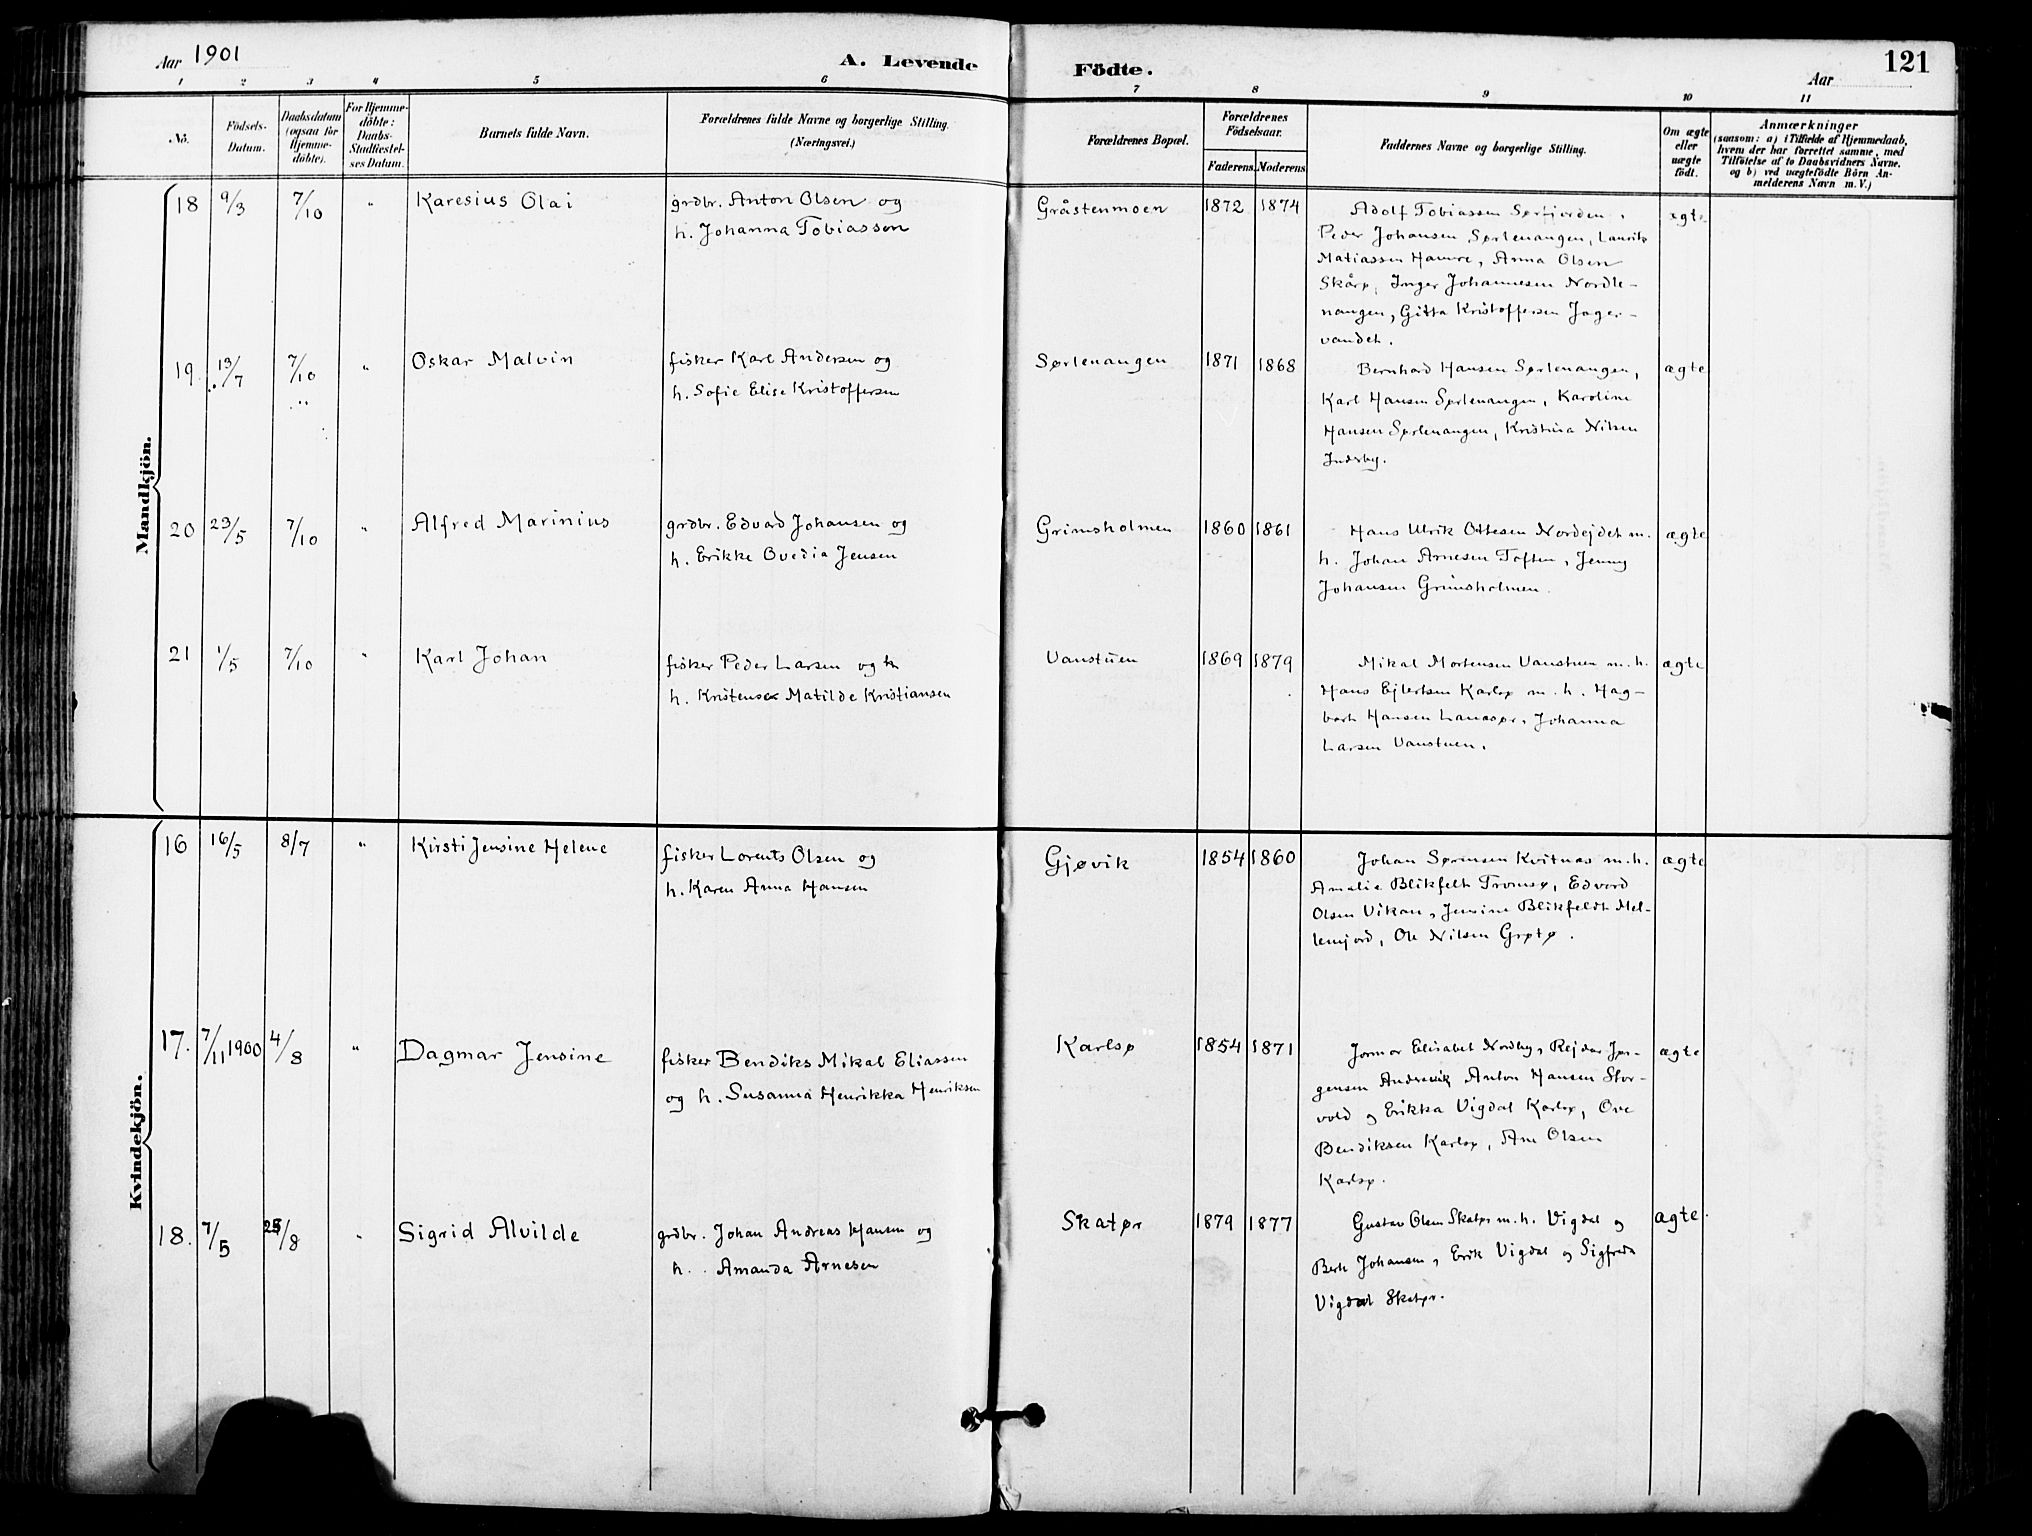 Aar 1901
A. Levende
Födte.
Aar
121
1 2 3 4 5 6 7 8 9 10 11
No.
Födsels-
Datum.
Daabsdatum
(ogsaa for
Hjemme-
döbte).
For Hjemme-
döbte:
Daabs-
Stadfæstel-
ses Datum.
Barnets fulde Navn.
Forældrenes fulde Navne og borgerlige Stilling.
(Næringsvei.)
Forældrenes Bopæl.
Forældrenes
Födselsaar.
Faderens. Moderens
Faddernes Navne og borgerlige Stilling.
Om ægte
eller
uægte
födt.
Anmærkninger
(saasom: a) i Tilfælde af Hjemmedaab,
hvem der har forrettet samme, med
Tilföielse af to Daabsvidners Navne,
og b) ved uægtefödte Börn An-
melderens Navn m. V.)
Mandkjön.
18 9/3 7/10 " Karesius Olai
grdbr. Anton Olsen og
h. Johanna Tobiassen
Gråstenmoen 1872 1874
Adolf Tobiassen Sørfjorden,
Peder Johansen Sørlenangen, Laurits
Matiassen Hamre, Anna Olsen
Skårp, Inger Johannesen Nordle-
nangen, Gitta Kristoffersen Jager-
vandet.
ægte
19 13/7 7/10 " Oskar Malvin
fisker Karl Andersen og
h. Sofie Elise Kristoffersen
Sørlenangen 1871 1868
Bernhard Hansen Sørlenangen,
Karl Hansen Sørlenangen, Karoline
Hansen Sørlenangen, Kristina Nilsen
Inderby.
ægte
20 23/5 7/10 " Alfred Marinius
grdbr. Edvard Johansen og
h. Erikke Ovedia Jensen
Grimsholmen 1860 1861
Hans Ulrik Ottesen Nordejdet m.
h. Johan Arnesen Toften, Jenny
Johansen Grimsholmen.
ægte
21 1/5 7/10 " Karl Johan
fisker Peder Larsen og h
h. Kristense Matilde Kristiansen
Vanstuen 1869 1879
Mikal Mortensen Vanstuen m. h.
Hans Ejlertsen Karlsø m. h. Hag-
bart Hansen Lanesør, Johanna
Larsen Vanstuen.
ægte
Kvindekjön.
16 16/5 8/7 " Kirsti Jensine Helene
fisker Lorents Olsen og
h. Karen Anna Hansen
Gjøvik 1854 1860
Johan Sørensen Kvitnas m. h.
Amalie Blikfelt Tromsø, Edvard
Olsen Vikan, Jensine Blikfeldt Mel-
lemjord, Ole Nilsen Grøtø.
ægte
17. 7/11 1900 4/8 " Dagmar Jensine
fisker Bendiks Mikal Eliassen
og h. Susanna Henrikka Henriksen
Karlsø 1854 1871
Jormor Elisabet Nordby, Rejdar Jør-
gensen Andresvik Anton Hansen Stor-
vold og Erikka Vigdal Karlsø, Ove
Bendiksen Karlsø, Ane Olsen
Karlsø.
ægte
18. 7/5 25/8 " Sigrid Alvilde
grdbr. Johan Andreas Hansen og
h. Amanda Arnesen
Skatør 1879 1877
Gustav Olsen Skatør m. h. Vigdal og
Berh Johansen, Erik Vigdal og Sigfrida
Vigdal Skatør.
ægte.